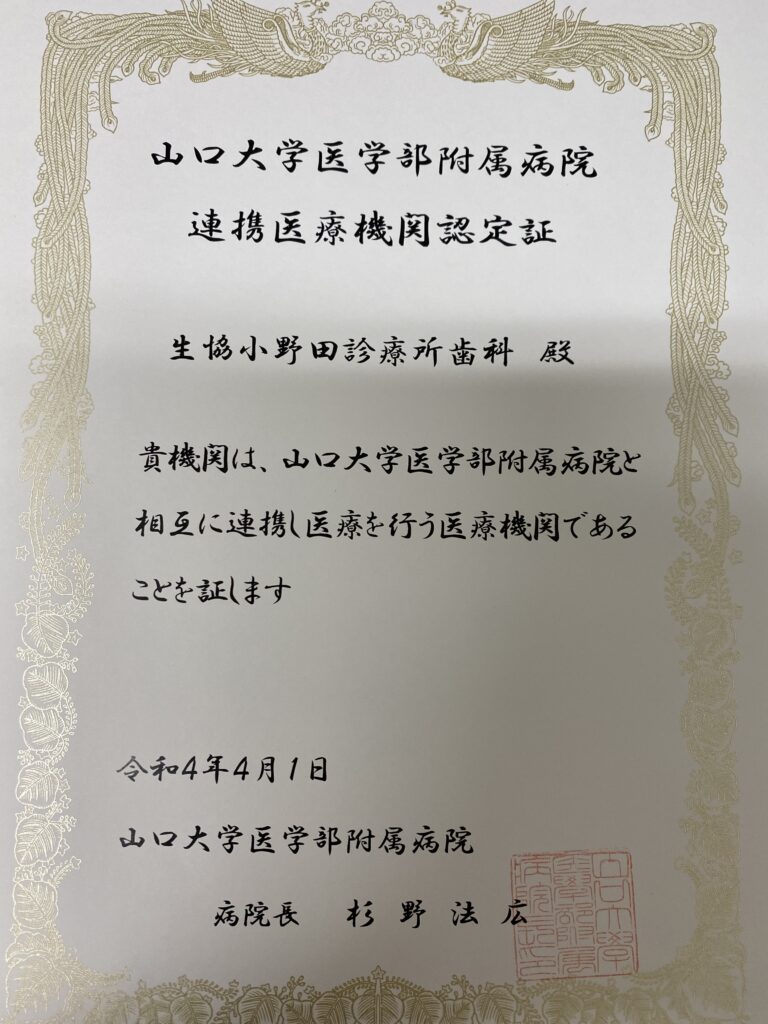 山口大学医学部附属病院
連携医療機関認定証
生協小野田診療所歯科 殿
貴機関は、山口大学医学部附属病院と
相互に連携し医療を行う医療機関である
ことを証します
令和4年4月1日
山口大学医学部附属病院
病院長 杉野法広